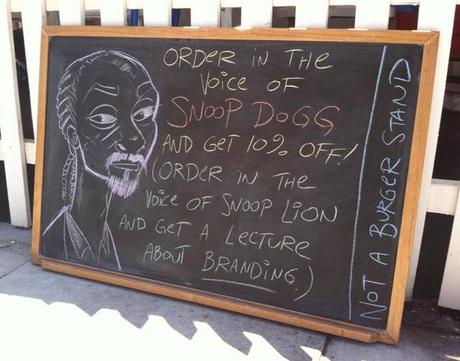 ORDER IN THE
VOICE OF
SNOOP DOGG
AND GET 10% OFF!
(ORDER IN THE
VOICE OF SNOOP LION
AND GET A LECTURE
ABOUT BRANDING.)
NOT A BURGER STAND